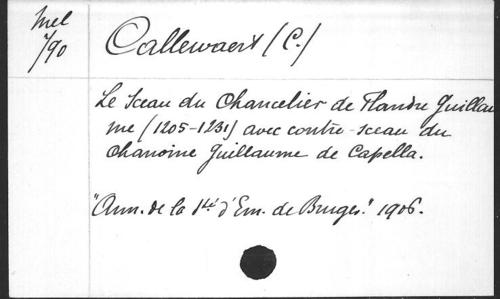 Mel
2/90
Callewaert (C.)
Le Sceau du Chancelier de Flandre Guillau
me (1205-1231) avec contre-sceau du
chanoine Guillaume de Capella.
"Ann. de la Sté d'Em. de Bruges." 1906.